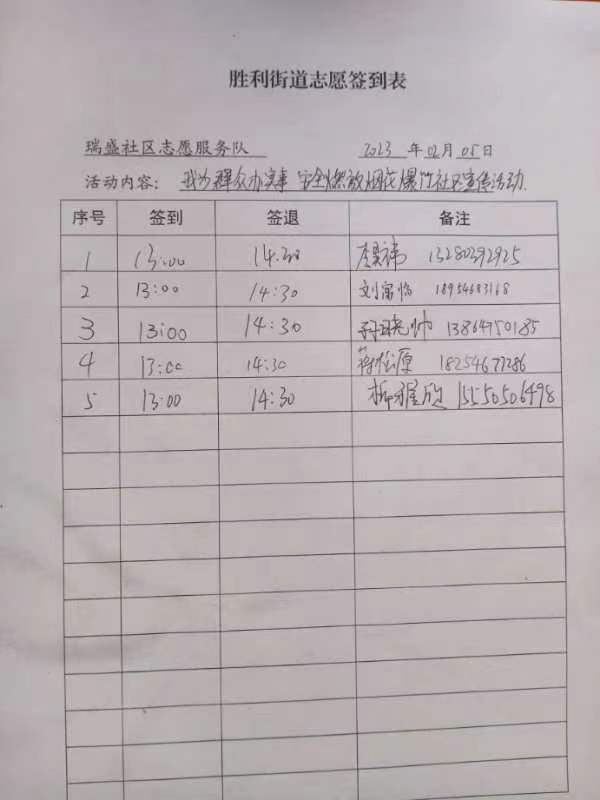 胜利街道志愿签到表
瑞盛社区志愿服务队 2023 年 02 月 05 日
活动内容： 我为群众办实事 安全燃放烟花爆竹社区宣传活动.
序号 签到 签退 备注
1 13:00 14:30 13280392925
2 13:00 14:30 18954603168
3 13:00 14:30 孙晓帅 13864750185
4 13:00 14:30 18254677286
5 13:00 14:30 15550506498